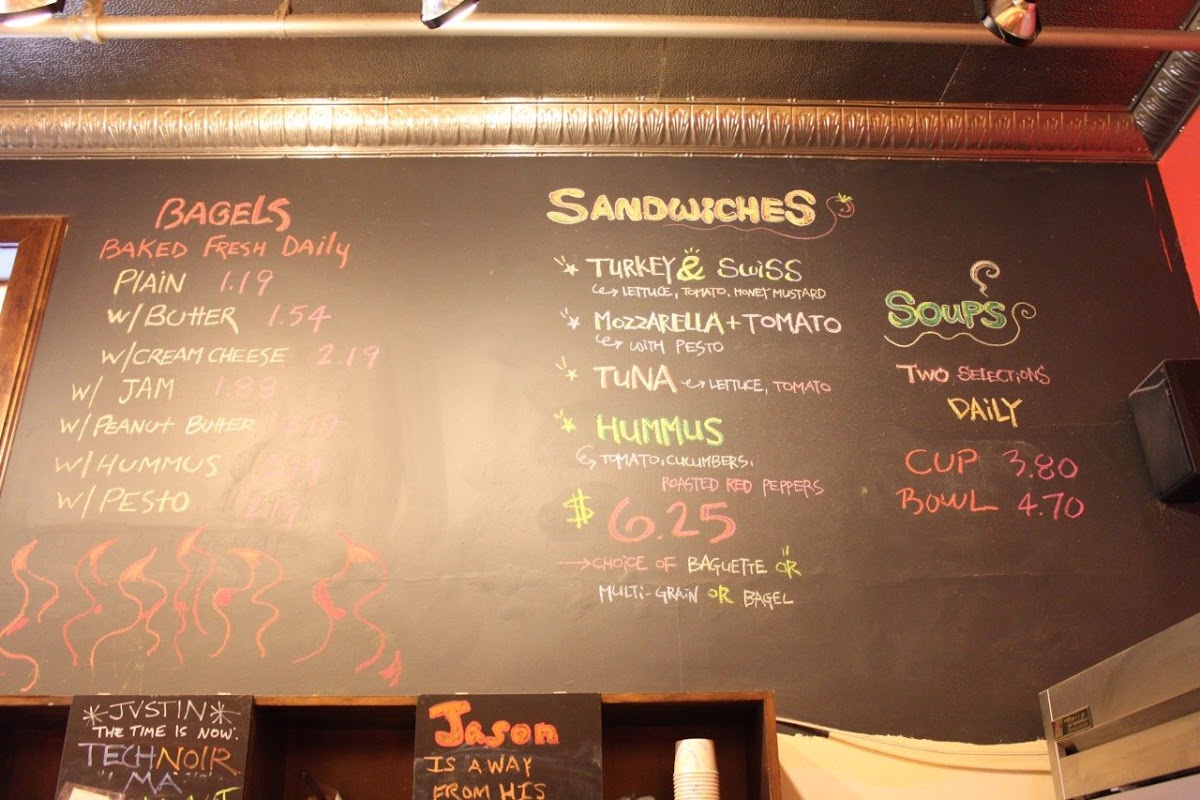 BAGELS
BAKED FRESH DAILY
PLAIN 1.19
W/BUTTER 1.54
W/CREAM CHEESE 2.19
W/ JAM 1.88
W/PEANUT BUTTER
W/HUMMUS
W/PESTO 2.19
SANDWICHES
TURKEY & SWISS
LETTUCE, TOMATO, HONEY MUSTARD
MOZZARELLA + TOMATO
WITH PESTO
TUNA LETTUCE, TOMATO
HUMMUS
TOMATO, CUCUMBERS,
ROASTED RED PEPPERS
$6.25
CHOICE OF BAGUETTE OR
MULTI-GRAIN OR BAGEL
SOUPS
TWO SELECTIONS
DAILY
CUP 3.80
BOWL 4.70
*JVSTIN*
THE TIME IS NOW.
TECHNOIR
MA
Jason
IS AWAY
FROM HIS
True